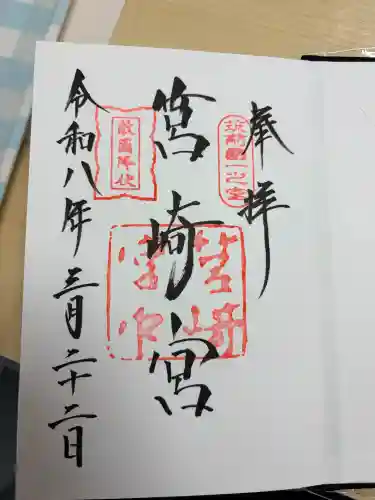 奉拝
筑前國一之宮
筥崎宮
筥崎
宮印
敵國降伏
令和八年三月二十二日